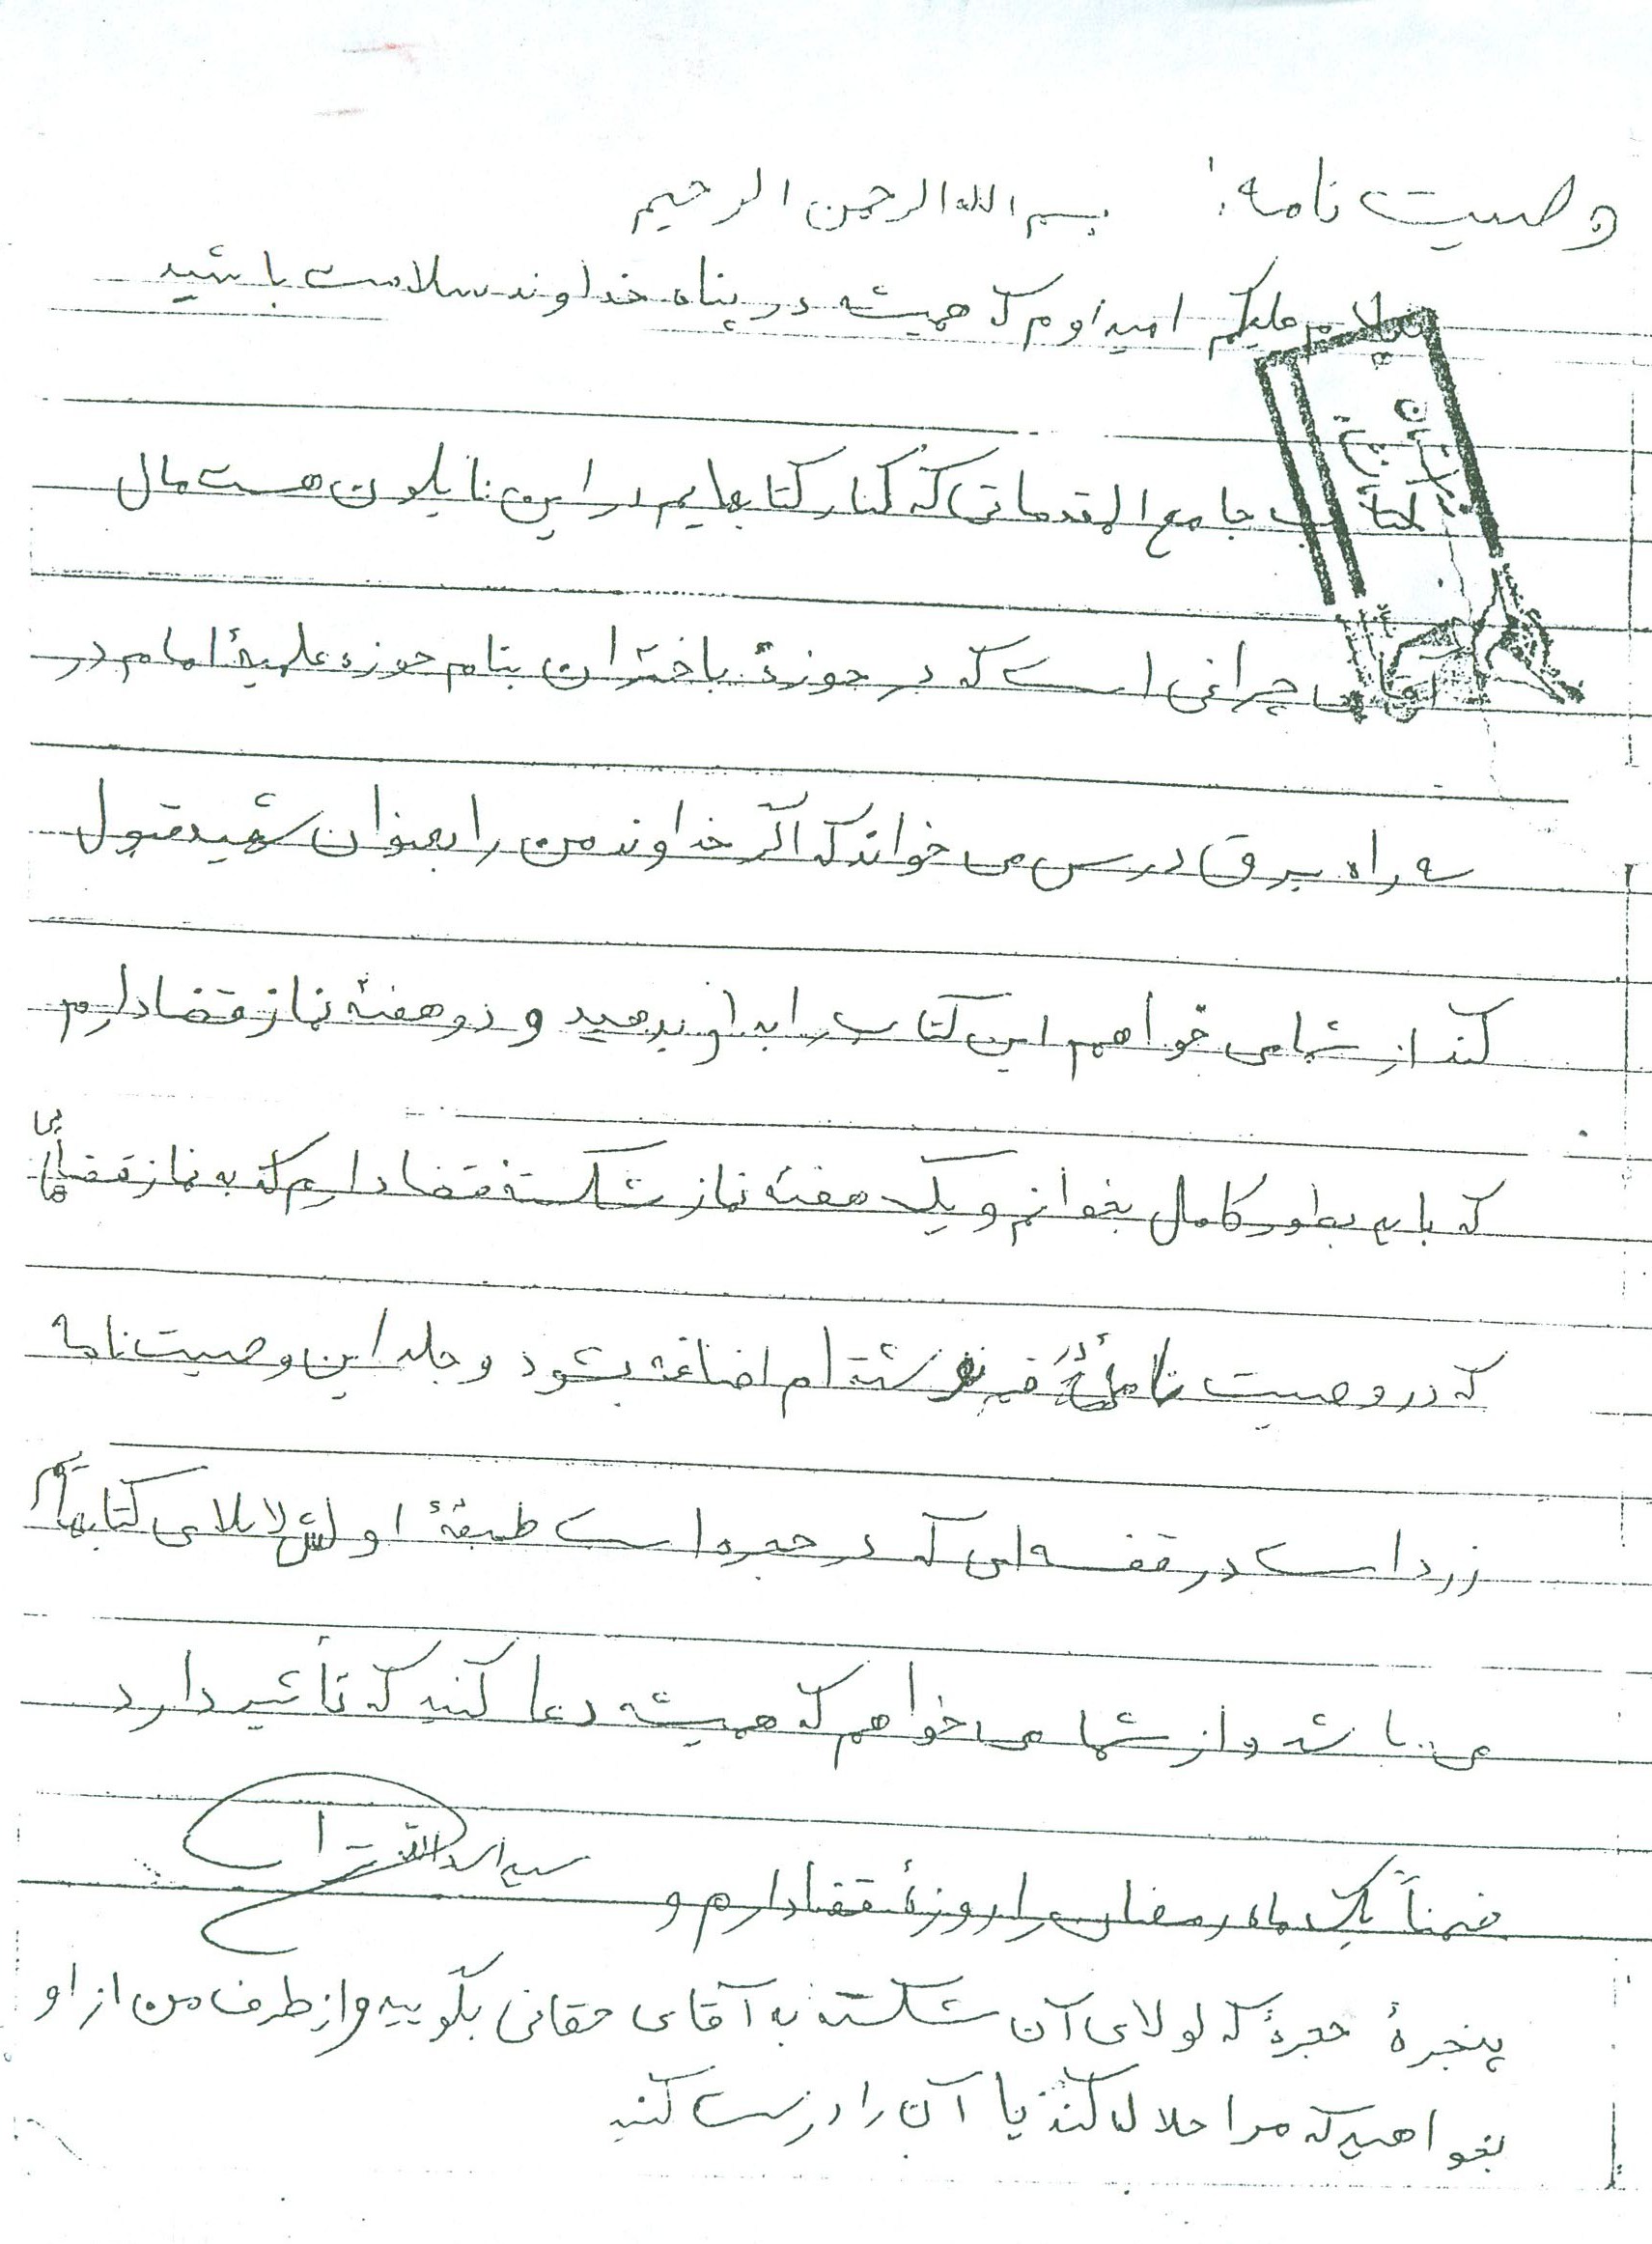 وصیت نامه: بسم الله الرحمن الرحیم
سلام علیکم امیداوم که همیشه در پناه خداوند سلامت باشید
کتاب جامع المقدماتی که کنار کتابهایم در این نایلون هست مال
آقای چراغی است که در حوزهٔ باختران بنام حوزه علمیهٔ امام در
سه راه برق درس می خواند که اگر خداوند من را بعنوان شهید قبول
کند از شما می خواهم این کتاب را به او بدهید و دو هفتهٔ نماز قضا دارم
که باید بطور کامل بخوانم و یک هفته نماز شکسته قضا دارم که به نماز قضاهایی
که در وصیت نامهٔ نوشته ام اضافه بشود و جلد این وصیت نامه
زرد است در قفسه ای که در حجره است طبقهٔ اولش لابلای کتابهایم
می باشد و از شما می خواهم که همیشه دعا کنید که تأثیر دارد
ضمناً یک ماه رمضان را روزهٔ قضا دارم و سید اسدالله
پنجرهٔ حجرهٔ که لولای آن شکسته به آقای حقانی بگویید و از طرف من از او
بخواهید که مرا حلال کند یا آن را درست کنید